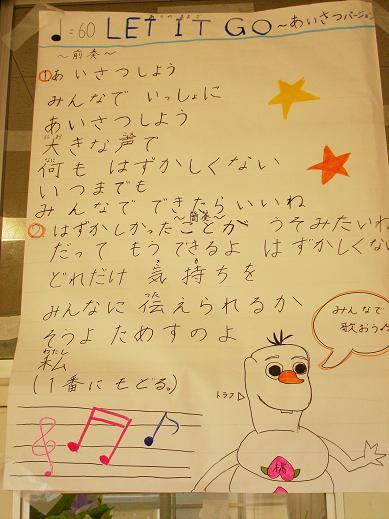 ♩=60 LET IT GO ～あいさつバージョン
～前奏～
①あいさつしよう
みんなで いっしょに
あいさつしよう
大きな声で
何も はずかしくない
いつまでも
みんなで できたらいいね
～間奏～
②はずかしかったことが うそみたいね
だって もうできるよ はずかしくない
どれだけ 気持ちを
みんなに 伝えられるか
そうよ ためすのよ
私
(1番にもどる。)
みんなで
歌おう♪
トラフ▷
橘